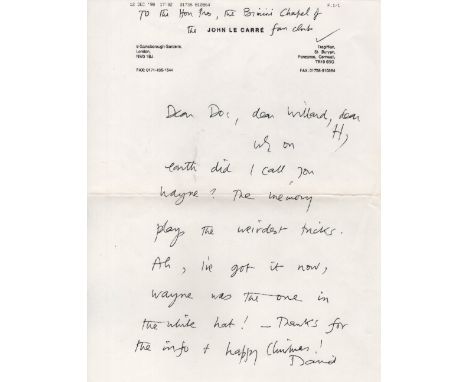 12 DEC '98 17:02 01736 810864 P.1/1
To the Hon Pres, the Bimini Chapel of
the JOHN LE CARRÉ fan club
9 Gainsborough Gardens, Tregiffian,
London, St. Buryan,
NW3 1BJ. Penzance, Cornwall,
TR19 6BG
FAX: 0171-435-1544 FAX: 01736-810864
Dear Doc, dear Willard, dear
H,
Why on
earth did I call you
Wayne? The memory
plays the weirdest tricks.
Ah, I've got it now,
Wayne was the one in
the white hat! – Thanks for
the info + happy Christmas!
David